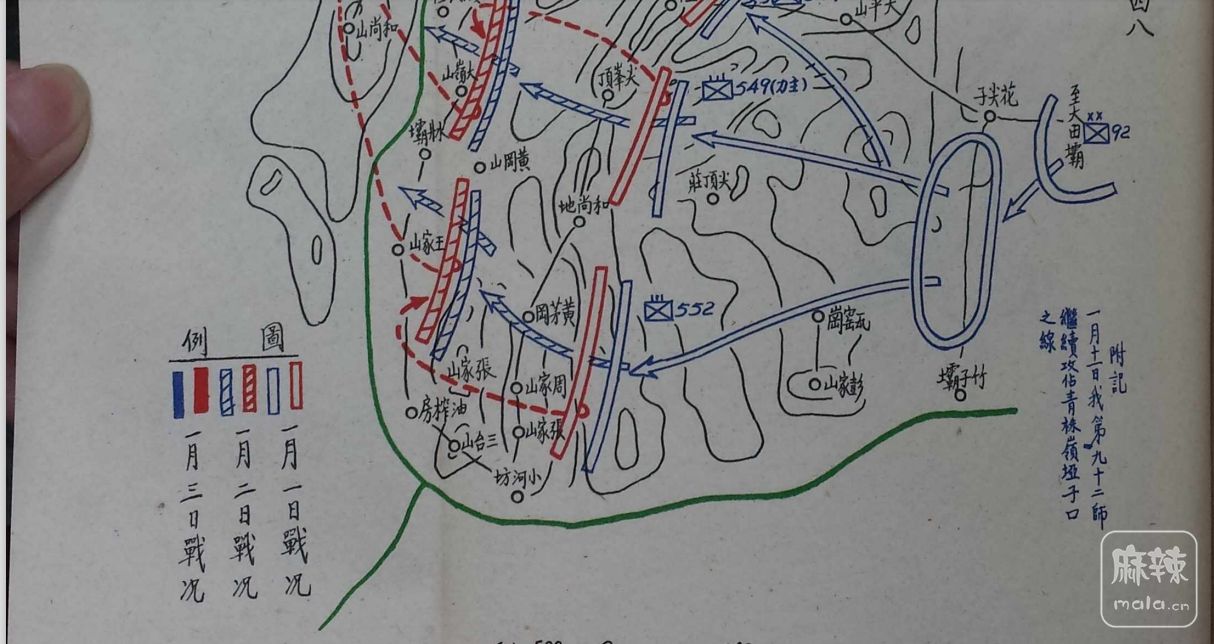 四八
山平尖
山尚和
山嶺大
頂峯尖
549(力主)
子尖花
至大田壩
xx
92
壩水
山岡黃
莊頂尖
地尚和
山家王
岡芳黃
552
崗窰瓦
山家彭
壩子竹
山家張
山家周
房榨油
山台三
山家張
坊河小
圖例
一月一日戰況
一月二日戰況
一月三日戰況
附記
一月十一日我第九十二師
繼續攻佔青林嶺埡子口
之線
麻辣
mala.cn